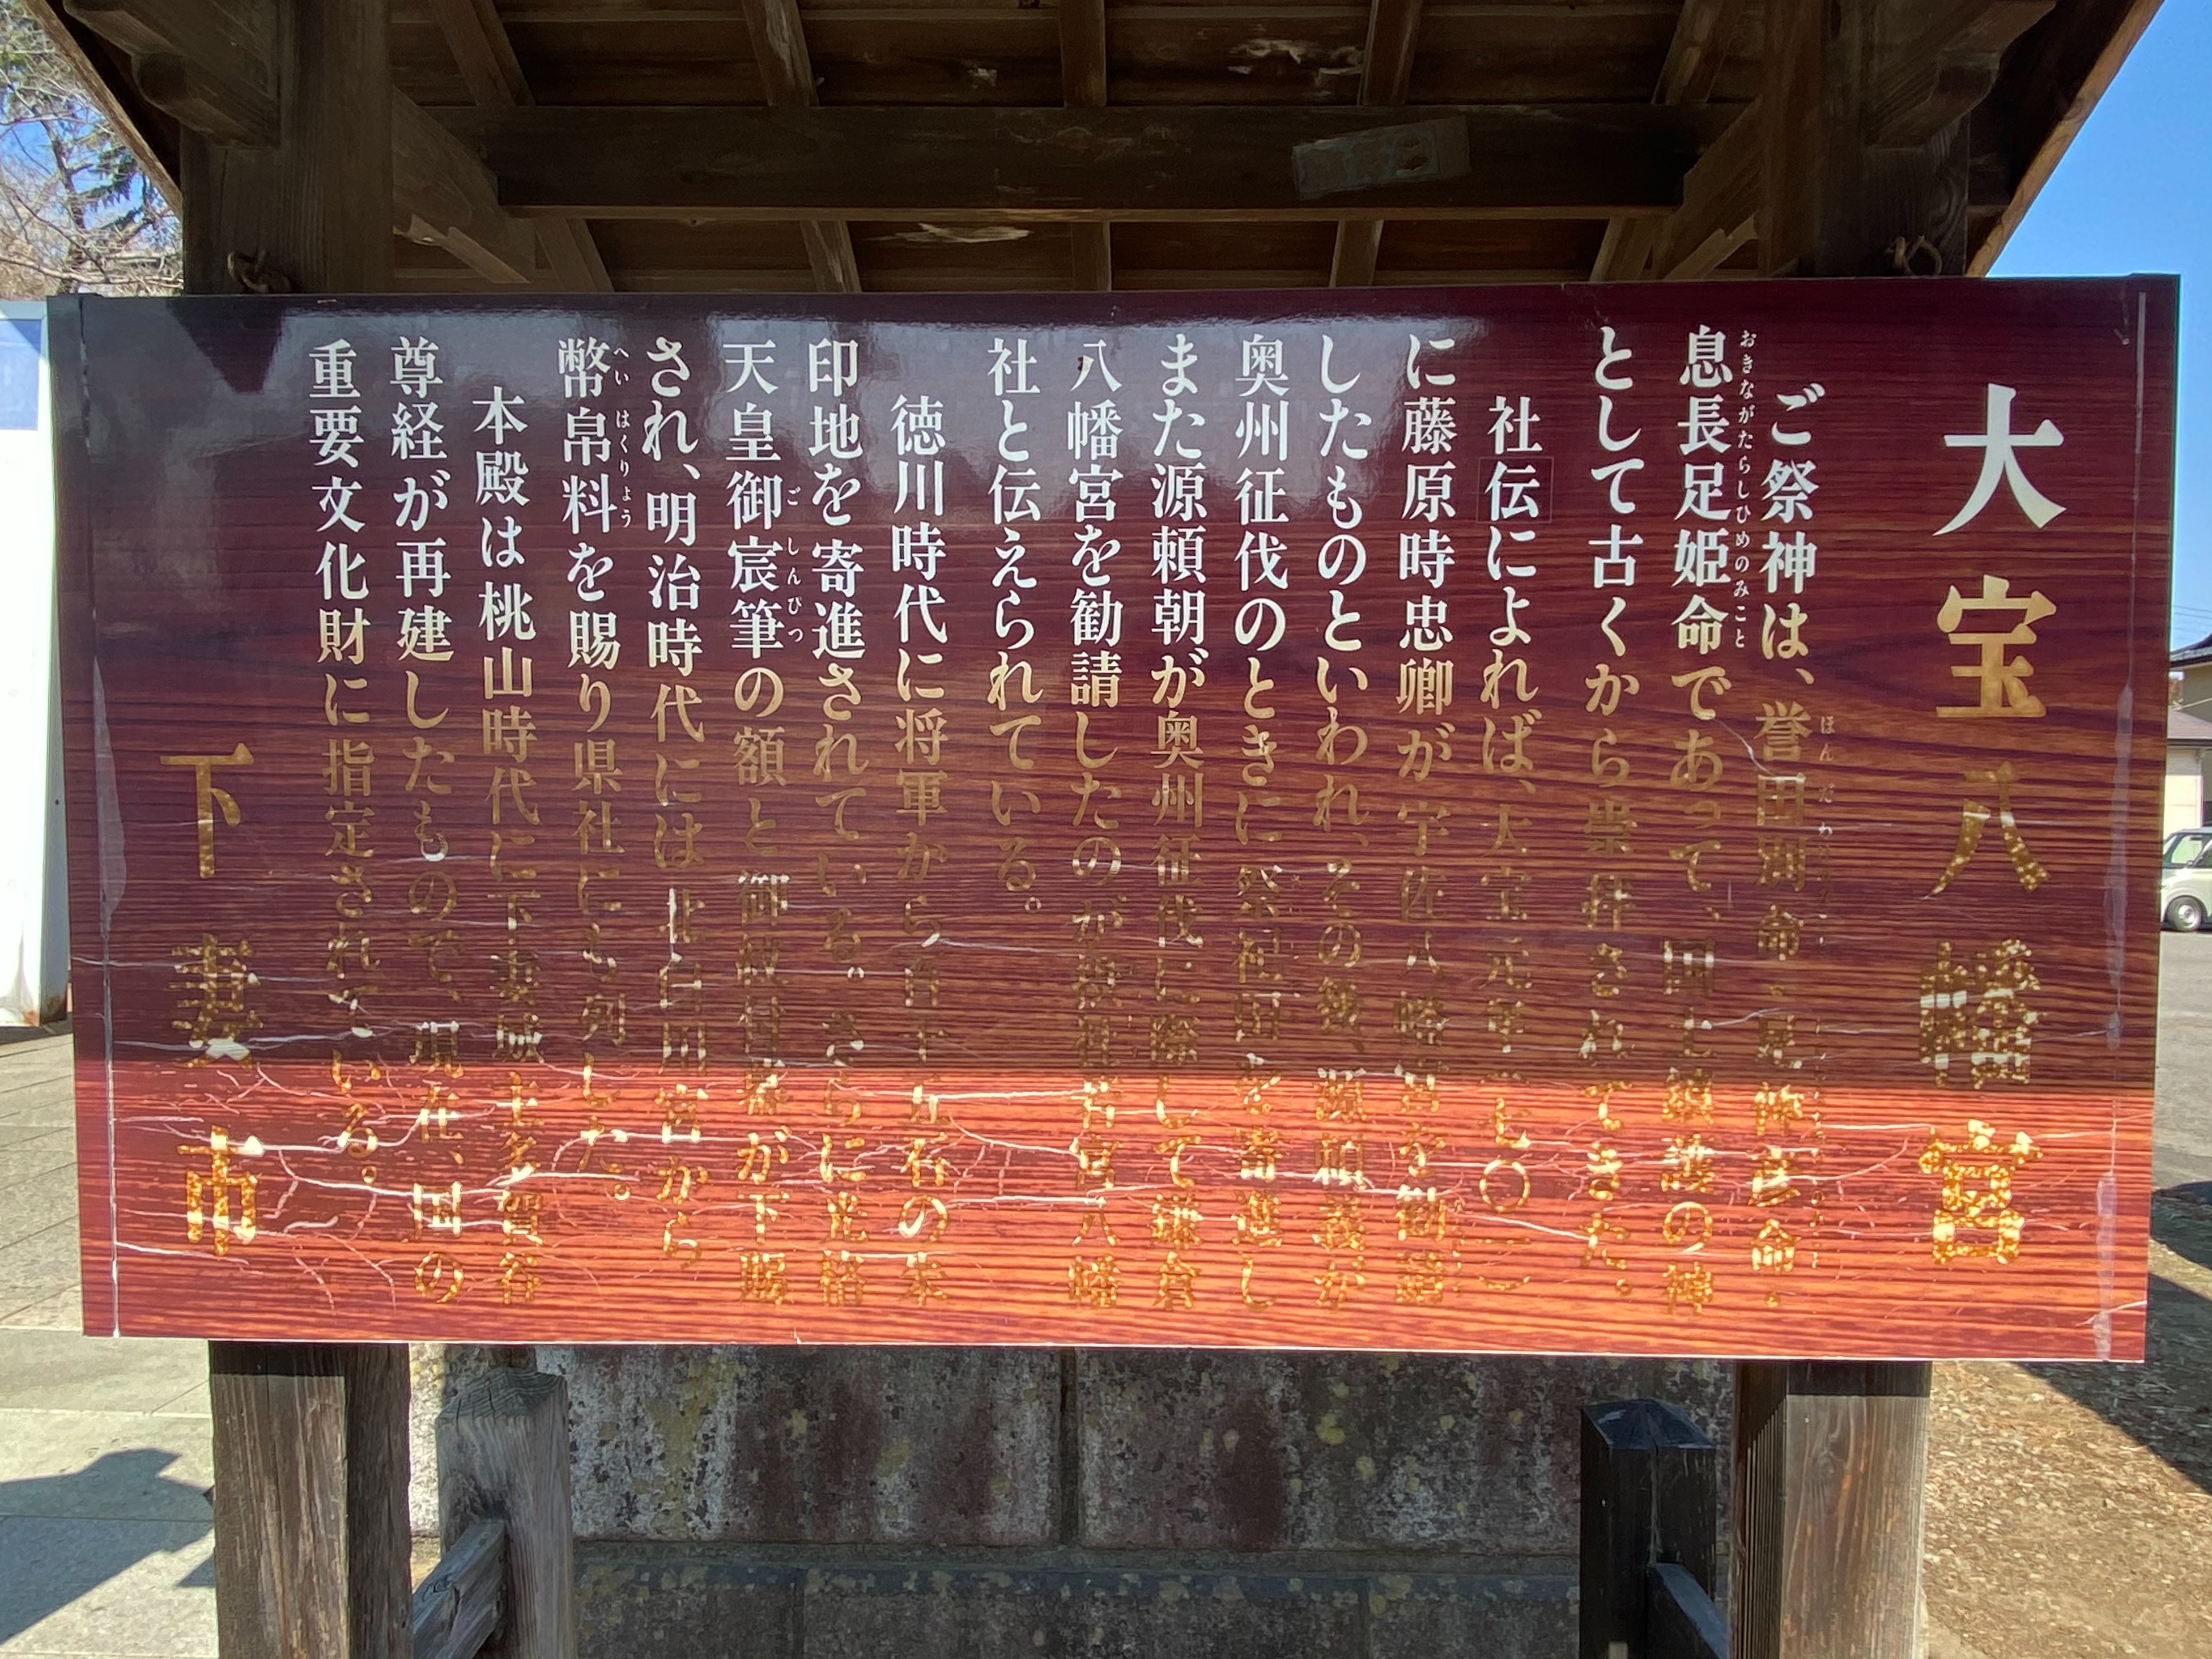 大宝八幡宮
ご祭神は、誉田別命・足仲彦命・
息長足姫命であって、国土鎮護の神
おきながたらしひめのみこと
として古くから崇拝されてきた。
社伝によれば、大宝元年(七〇一)
に藤原時忠卿が宇佐八幡宮を勧請
したものといわれ、その後、源頼義が
奥州征伐のときに祭祀田を寄進し
また源頼朝が奥州征伐に際して鎌倉
八幡宮を勧請したのが摂社若宮八幡
社と伝えられている。
徳川時代に将軍から百十五石の朱
印地を寄進されている。さらに光格
天皇御宸筆の額と御紋付幕が下賜
ごしんぴつ
され、明治時代には北白川宮から
幣帛料を賜り県社にも列した。
へいはくりょう
本殿は桃山時代に下妻城主多賀谷
尊経が再建したもので、現在、国の
重要文化財に指定されている。
下妻市